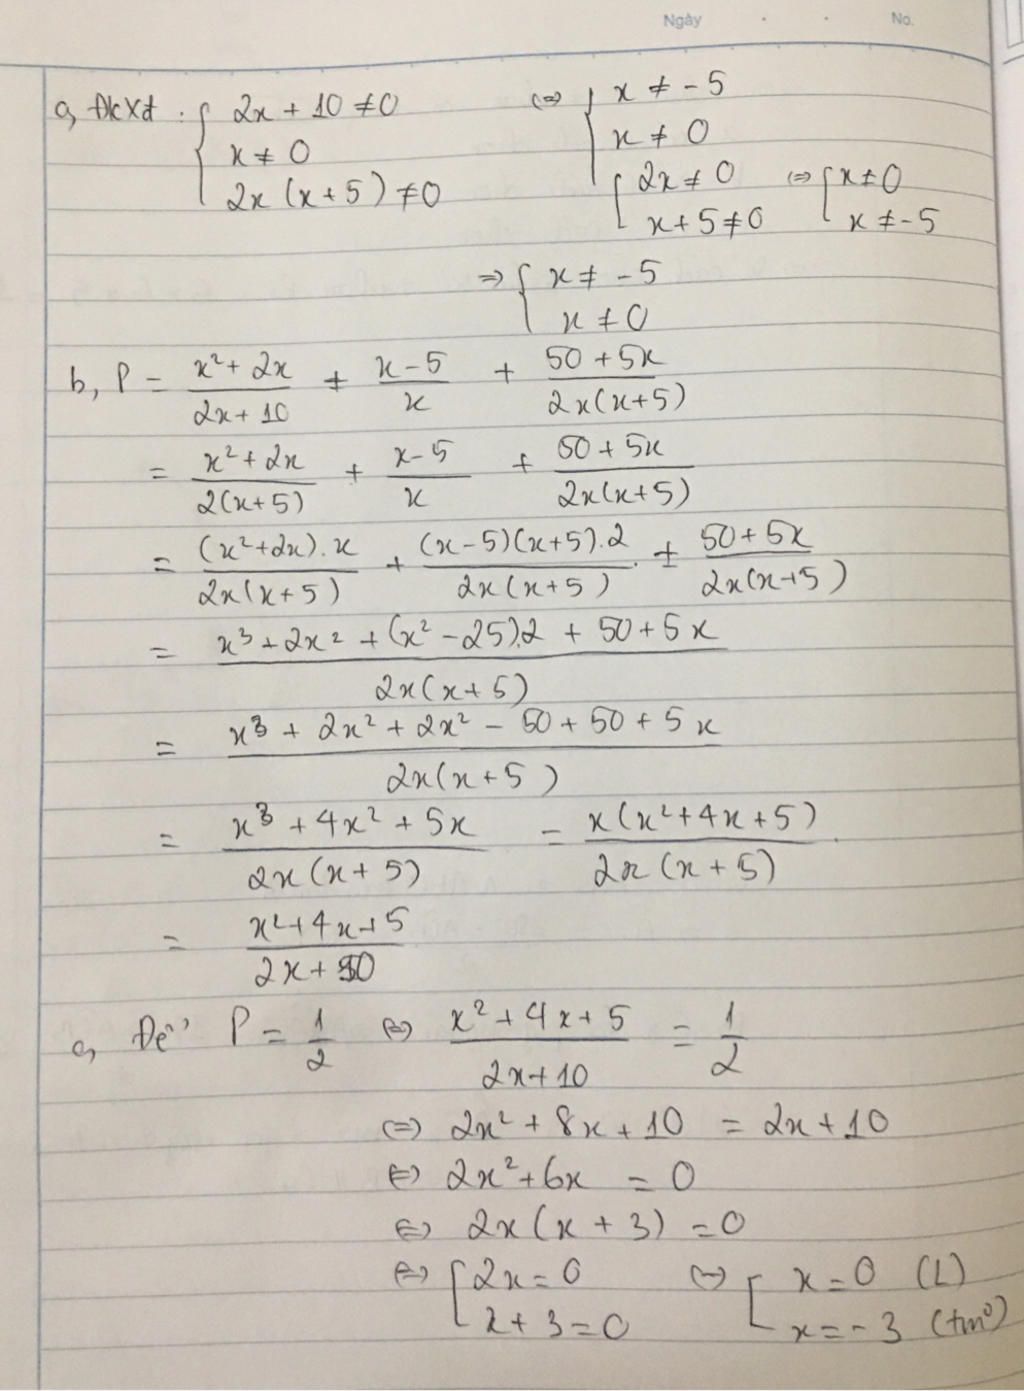 Ngày . . No.
a, ĐKXĐ : { 2x + 10 ≠ 0 (=) { x ≠ -5
x ≠ 0 x ≠ 0
2x (x + 5) ≠ 0 { 2x ≠ 0 (=) { x ≠ 0
x + 5 ≠ 0 x ≠ -5
=> { x ≠ -5
x ≠ 0
b, P = \frac{x² + 2x}{2x + 10} + \frac{x - 5}{x} + \frac{50 + 5x}{2x(x+5)}
= \frac{x² + 2x}{2(x+5)} + \frac{x - 5}{x} + \frac{50 + 5x}{2x(x+5)}
= \frac{(x²+2x).x}{2x(x+5)} + \frac{(x-5)(x+5).2}{2x(x+5)} + \frac{50+5x}{2x(x+5)}
= \frac{x³ + 2x² + (x² - 25).2 + 50 + 5x}{2x(x+5)}
= \frac{x³ + 2x² + 2x² - 50 + 50 + 5x}{2x(x+5)}
= \frac{x³ + 4x² + 5x}{2x(x+5)} = \frac{x(x²+4x+5)}{2x(x+5)}
= \frac{x²+4x+5}{2x+10}
c, Để P = \frac{1}{2} (=) \frac{x² + 4x + 5}{2x + 10} = \frac{1}{2}
(=) 2x² + 8x + 10 = 2x + 10
(=) 2x² + 6x = 0
(=) 2x (x + 3) = 0
(=) [ 2x = 0 (=) [ x = 0 (L)
x + 3 = 0 x = -3 (tm)